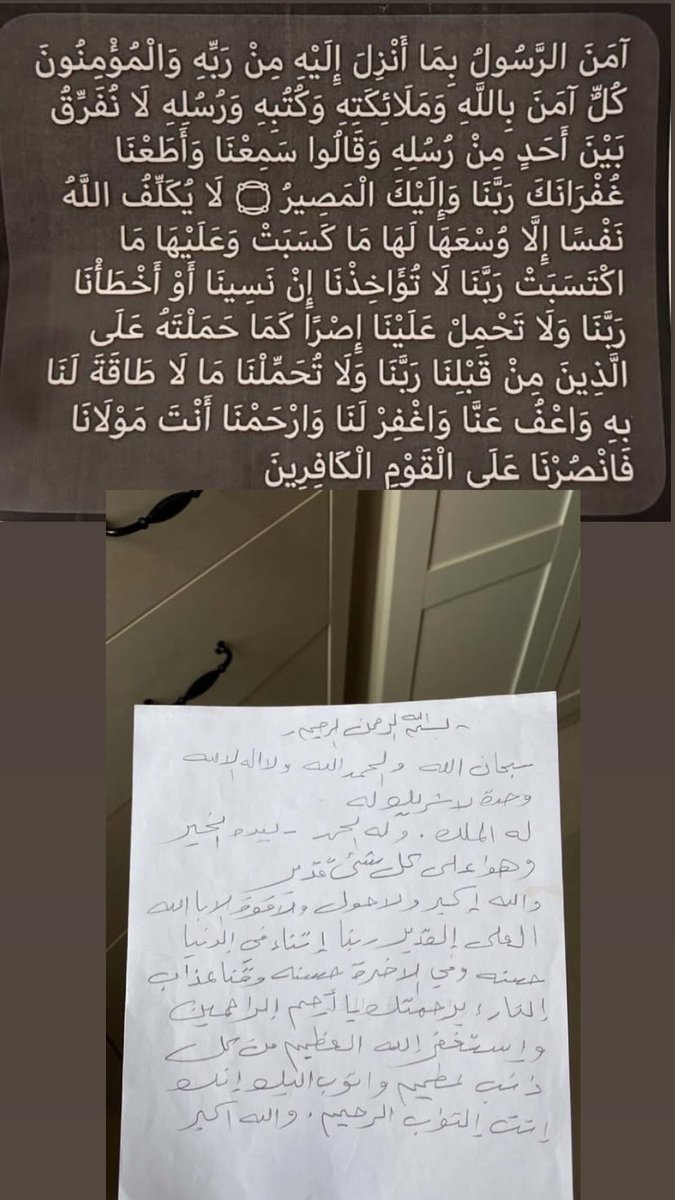 آمَنَ الرَّسُولُ بِمَا أُنْزِلَ إِلَيْهِ مِنْ رَبِّهِ وَالْمُؤْمِنُونَ
كُلٌّ آمَنَ بِاللَّهِ وَمَلَائِكَتِهِ وَكُتُبِهِ وَرُسُلِهِ لَا نُفَرِّقُ
بَيْنَ أَحَدٍ مِنْ رُسُلِهِ وَقَالُوا سَمِعْنَا وَأَطَعْنَا
غُفْرَانَكَ رَبَّنَا وَإِلَيْكَ الْمَصِيرُ ۝ لَا يُكَلِّفُ اللَّهُ
نَفْسًا إِلَّا وُسْعَهَا لَهَا مَا كَسَبَتْ وَعَلَيْهَا مَا
اكْتَسَبَتْ رَبَّنَا لَا تُؤَاخِذْنَا إِنْ نَسِينَا أَوْ أَخْطَأْنَا
رَبَّنَا وَلَا تَحْمِلْ عَلَيْنَا إِصْرًا كَمَا حَمَلْتَهُ عَلَى
الَّذِينَ مِنْ قَبْلِنَا رَبَّنَا وَلَا تُحَمِّلْنَا مَا لَا طَاقَةَ لَنَا
بِهِ وَاعْفُ عَنَّا وَاغْفِرْ لَنَا وَارْحَمْنَا أَنْتَ مَوْلَانَا
فَانْصُرْنَا عَلَى الْقَوْمِ الْكَافِرِينَ
- بسم الله الرحمن الرحيم -
سبحان الله والحمد الله ولا اله الا الله
وحدة لا شريك له
له الملك . وله الحمد - بيده الخير
وهوا على كل شئ قدير
والله إكبر ولا حول ولا قوة الا با الله
العلى إلقدير ربنا إتناء في إلدنيا
حسنه وفي الاخرة حسنه وقنا عذاب
إلنار ء برحمتك يا أرحم إلراحمين
وإستغفر إلله العظيم من كل
ذنب عظيم واتوب اليك إنك
إنت إلتواب الرحيم . والله اكبر